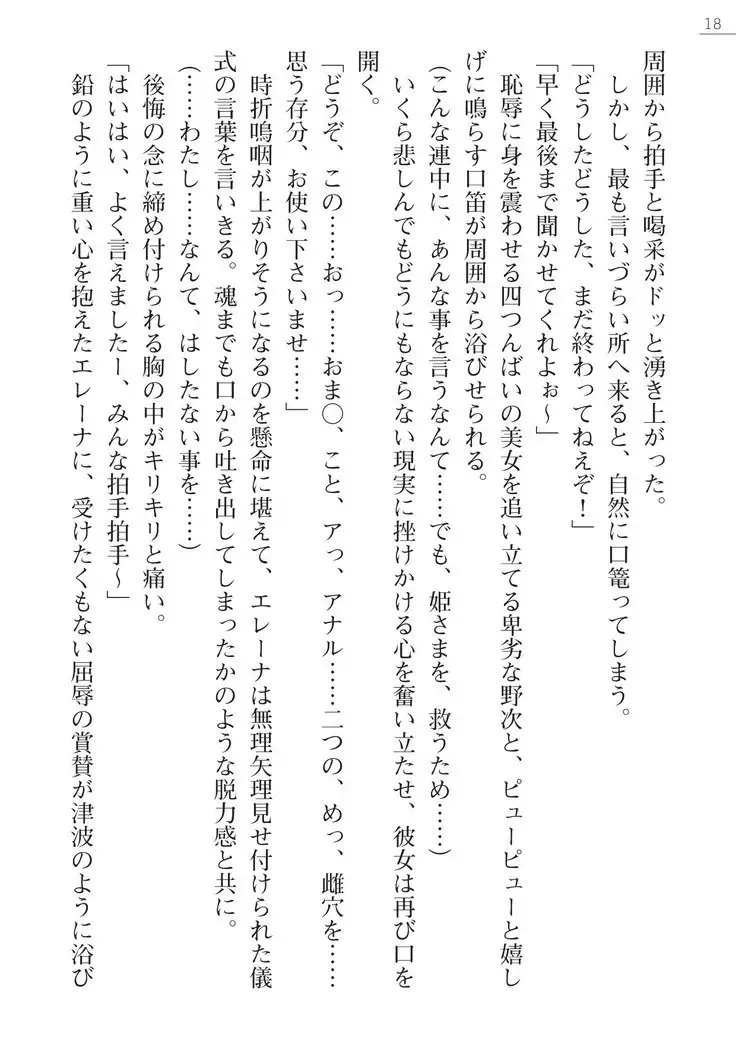 18
周囲から拍手と喝采がドッと湧き上がった。
しかし、最も言いづらい所へ来ると、自然に口篭ってしまう。
「どうしたどうした、まだ終わってねえぞ！」
「早く最後まで聞かせてくれよぉ～」
恥辱に身を震わせる四つんばいの美女を追い立てる卑劣な野次と、ピューピューと嬉し
げに鳴らす口笛が周囲から浴びせられる。
(こんな連中に、あんな事を言うなんて……でも、姫さまを、救うため……)
いくら悲しんでもどうにもならない現実に挫けかける心を奮い立たせ、彼女は再び口を
開く。
「どうぞ、この……おっ……おま〇、こと、アっ、アナル……二つの、めっ、雌穴を……
思う存分、お使い下さいませ……」
時折嗚咽が上がりそうになるのを懸命に堪えて、エレーナは無理矢理見せ付けられた儀
式の言葉を言いきる。魂までも口から吐き出してしまったかのような脱力感と共に。
(……わたし……なんて、はしたない事を……)
後悔の念に締め付けられる胸の中がキリキリと痛い。
「はいはい、よく言えましたー、みんな拍手拍手～」
鉛のように重い心を抱えたエレーナに、受けたくもない屈辱の賞賛が津波のように浴び